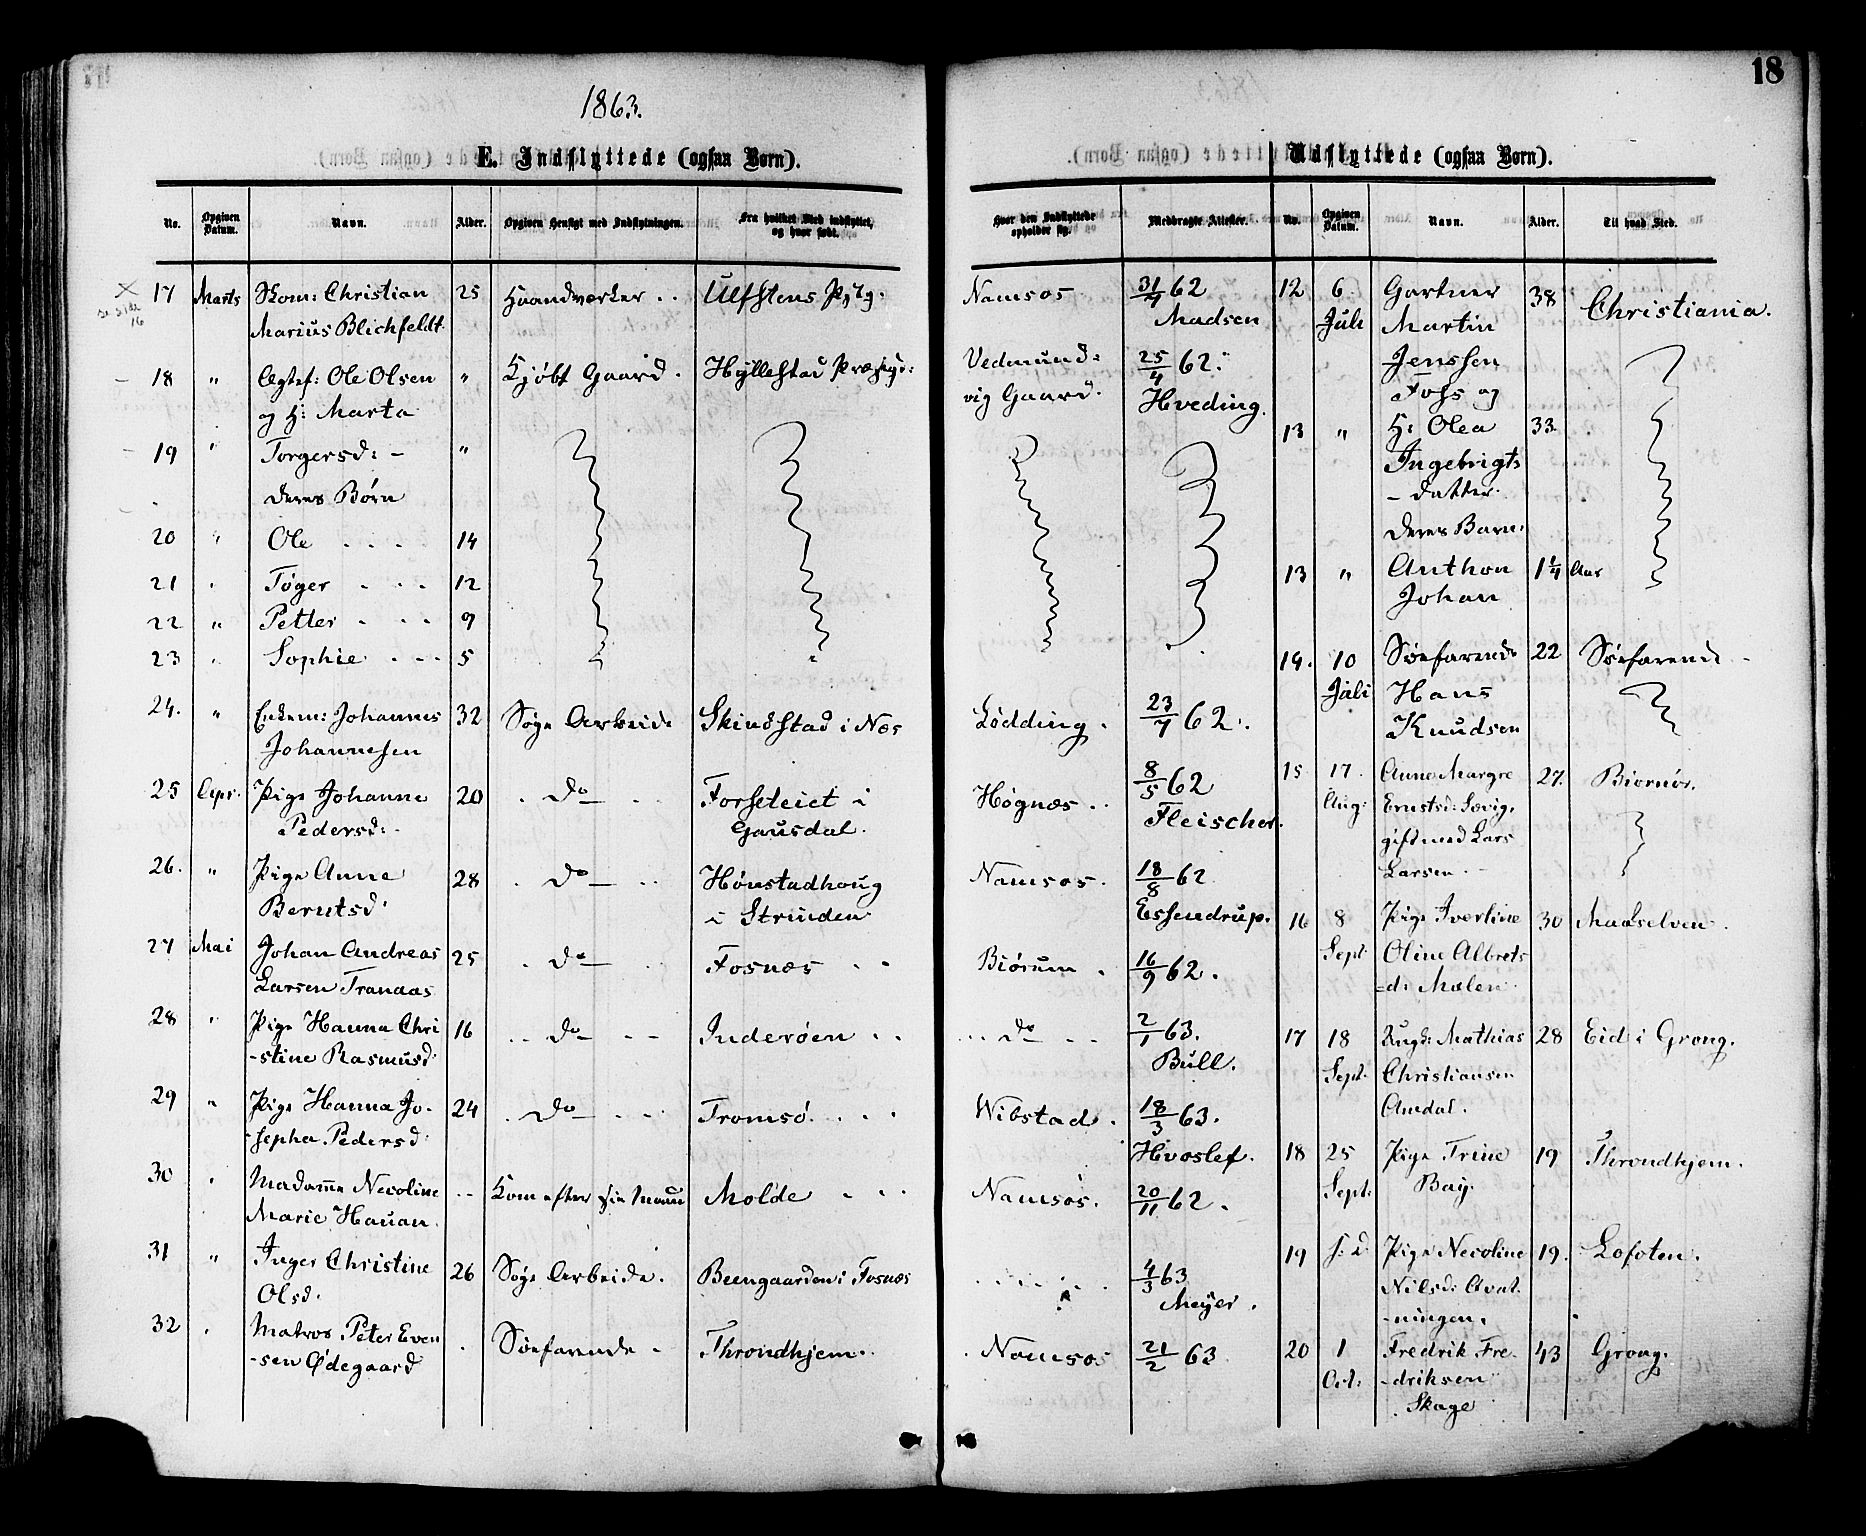 18
1863.
E. Indflyttede (ogsaa Børn).
Udflyttede (ogsaa Børn).
No. Opgiven Datum. Navn. Alder. Opgiven Hensigt med Indflytningen. Fra hvilket Sted indflyttet, og hvor født. Hvor den Indflyttede opholder sig. Medbragte Attester.
17 Marts Skom: Christian 25 Haandværker .. Ulfstens Namsos 31/7 62
Marius Blichfeldt Madsen
se side 16
18 " Ole Olsen " Kjøbt Gaard. Hyllestad Præstgj: Vedmund= 25/4 62.
og H: Marta vig Gaard. Hveding.
19 " Torgersd: - "
deres Børn
20 " Ole . . . 14
21 . Tøger . . . 12
22 " Petter . . . 9
23 . Sophie . . . 5
24. " Enkem: Johannes 32 Søge Arbeide Skindstad i Næs Lødding. 23/7 62.
Johannesen
25 Apr. Pige Johanne 20 . do . . Forseteiet i Høgnæs .. 8/5 62
Pedersd: Gausdal. Fleischer.
26. " Pige Anne 28 . do .. Hønstadhoug Namsos. 18/8 62
Berntsd: i Strinden Essendrup.
27 Mai Johan Andreas 25 . do . Fosnæs .. Biørum . 16/9 62.
Larsen Tranaas
28 " Pige Hanna Chri 16 .. do -- Inderøen .. ... do .. 2/1 63.
-stine Rasmusd: Bull.
29 " Pige Hanna Jo- 24 . do -. Tromsø . . . Wibstad . 18/3 63.
-sepha Pedersd: Hvoslef.
30 . Madame Nicoline .. Kom efter sin Mand Molde . . . Namsos. 20/11 62.
Marie Hauan.
31 " Inger Christine 26 Søge Arbeide. Beengaarden i Fosnæs . . . . . 4/3 63
Olsd. Meyer.
32 . Matros Peter Even . Søefarende - Throndhjem.. . Namsos 21/2 63
-sen Ødegaard
No. Opgiven Datum. Navn. Alder. Til hvad Sted.
12 6 Gartner 38 Christiania.
Juli Martin
Jenssen
Foss og
13 " H: Olea 33
Ingebrigts
- datter.
deres Barn:
13 " Anthon 1 1/4 Aar
Johan
14. 10 Søefarende 22 Søefarend -
Juli Hans
Knudsen
15 17. Anne Margre 27. Biørnør.
Aug: Ernstsd: Sævig,
gift med Lars
Larsen.
16 8 Pige Iverline 30 Maalselven.
Sept. Oline Albrets
=d: Mælen.
17 18 Ungk: Mathias 28 Eid i Grong.
Sept. Christiansen
Amdal.
18 25 Pige Trine 19 Throndhjem.
Sept: Bay.
19 s: d. Pige Nicoline 19. Lofoten.
Nilsd:
-ningen.
20 1 Fredrik Fre- 43 Grong.
Oct: -driksen
Skage